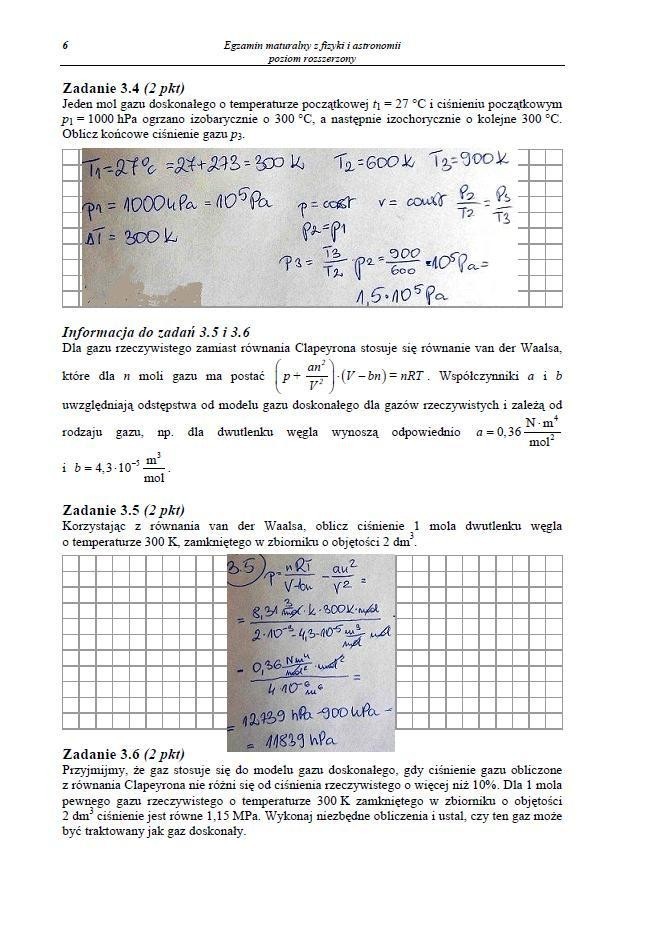 6
Egzamin maturalny z fizyki i astronomii
poziom rozszerzony
Zadanie 3.4 (2 pkt)
Jeden mol gazu doskonałego o temperaturze początkowej t₁ = 27 °C i ciśnieniu początkowym
p₁ = 1000 hPa ogrzano izobarycznie o 300 °C, a następnie izochorycznie o kolejne 300 °C.
Oblicz końcowe ciśnienie gazu p₃.
T₁=27°C =27+273=300K T₂=600K T₃=900K
p₁ = 1000hPa = 10⁵Pa p=const v= const P₂/T₂ = P₃/T₃
ΔT = 300K p₂=p₁
P₃= T₃/T₂ · p₂= 900/600 ·10⁵Pa=
1,5·10⁵Pa
Informacja do zadań 3.5 i 3.6
Dla gazu rzeczywistego zamiast równania Clapeyrona stosuje się równanie van der Waalsa,
które dla n moli gazu ma postać (p + an²/V²)·(V – bn) = nRT. Współczynniki a i b
uwzględniają odstępstwa od modelu gazu doskonałego dla gazów rzeczywistych i zależą od
rodzaju gazu, np. dla dwutlenku węgla wynoszą odpowiednio a = 0,36 N·m⁴/mol²
i b = 4,3·10⁻⁵ m³/mol.
Zadanie 3.5 (2 pkt)
Korzystając z równania van der Waalsa, oblicz ciśnienie 1 mola dwutlenku węgla
o temperaturze 300 K, zamkniętego w zbiorniku o objętości 2 dm³.
3.5) p= nRT/V-bn - an²/V² =
= 8,31 · K · 300K·mol
2·10⁻³-4,3·10⁻⁵ m³/mol mol
- 0,36 Nm⁴/mol² · mol² =
4·10⁻⁶ m⁶
= 12739 hPa -900hPa -
= 11839 hPa
Zadanie 3.6 (2 pkt)
Przyjmijmy, że gaz stosuje się do modelu gazu doskonałego, gdy ciśnienie gazu obliczone
z równania Clapeyrona nie różni się od ciśnienia rzeczywistego o więcej niż 10%. Dla 1 mola
pewnego gazu rzeczywistego o temperaturze 300 K zamkniętego w zbiorniku o objętości
2 dm³ ciśnienie jest równe 1,15 MPa. Wykonaj niezbędne obliczenia i ustal, czy ten gaz może
być traktowany jak gaz doskonały.